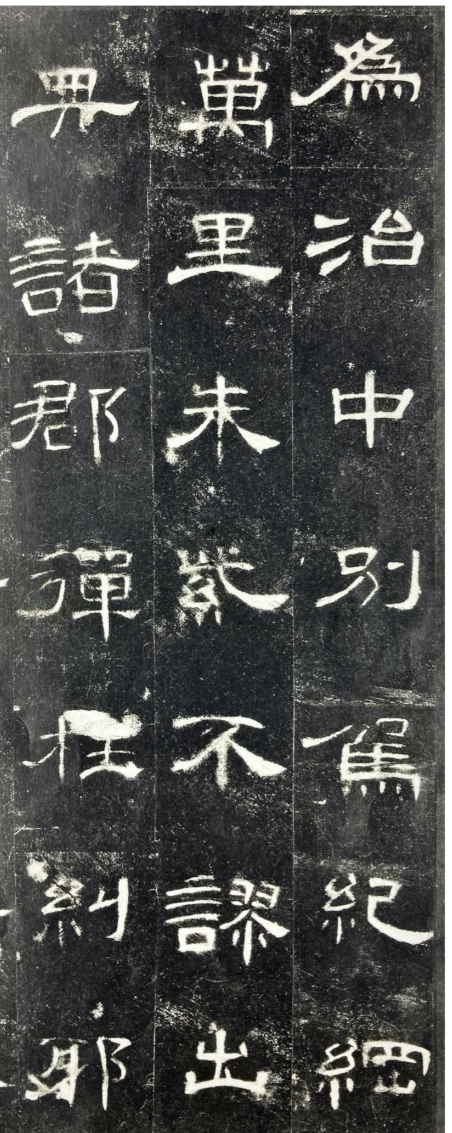 為治中別駕紀綱
萬里朱紫不謬出
典諸郡彈枉糾邪